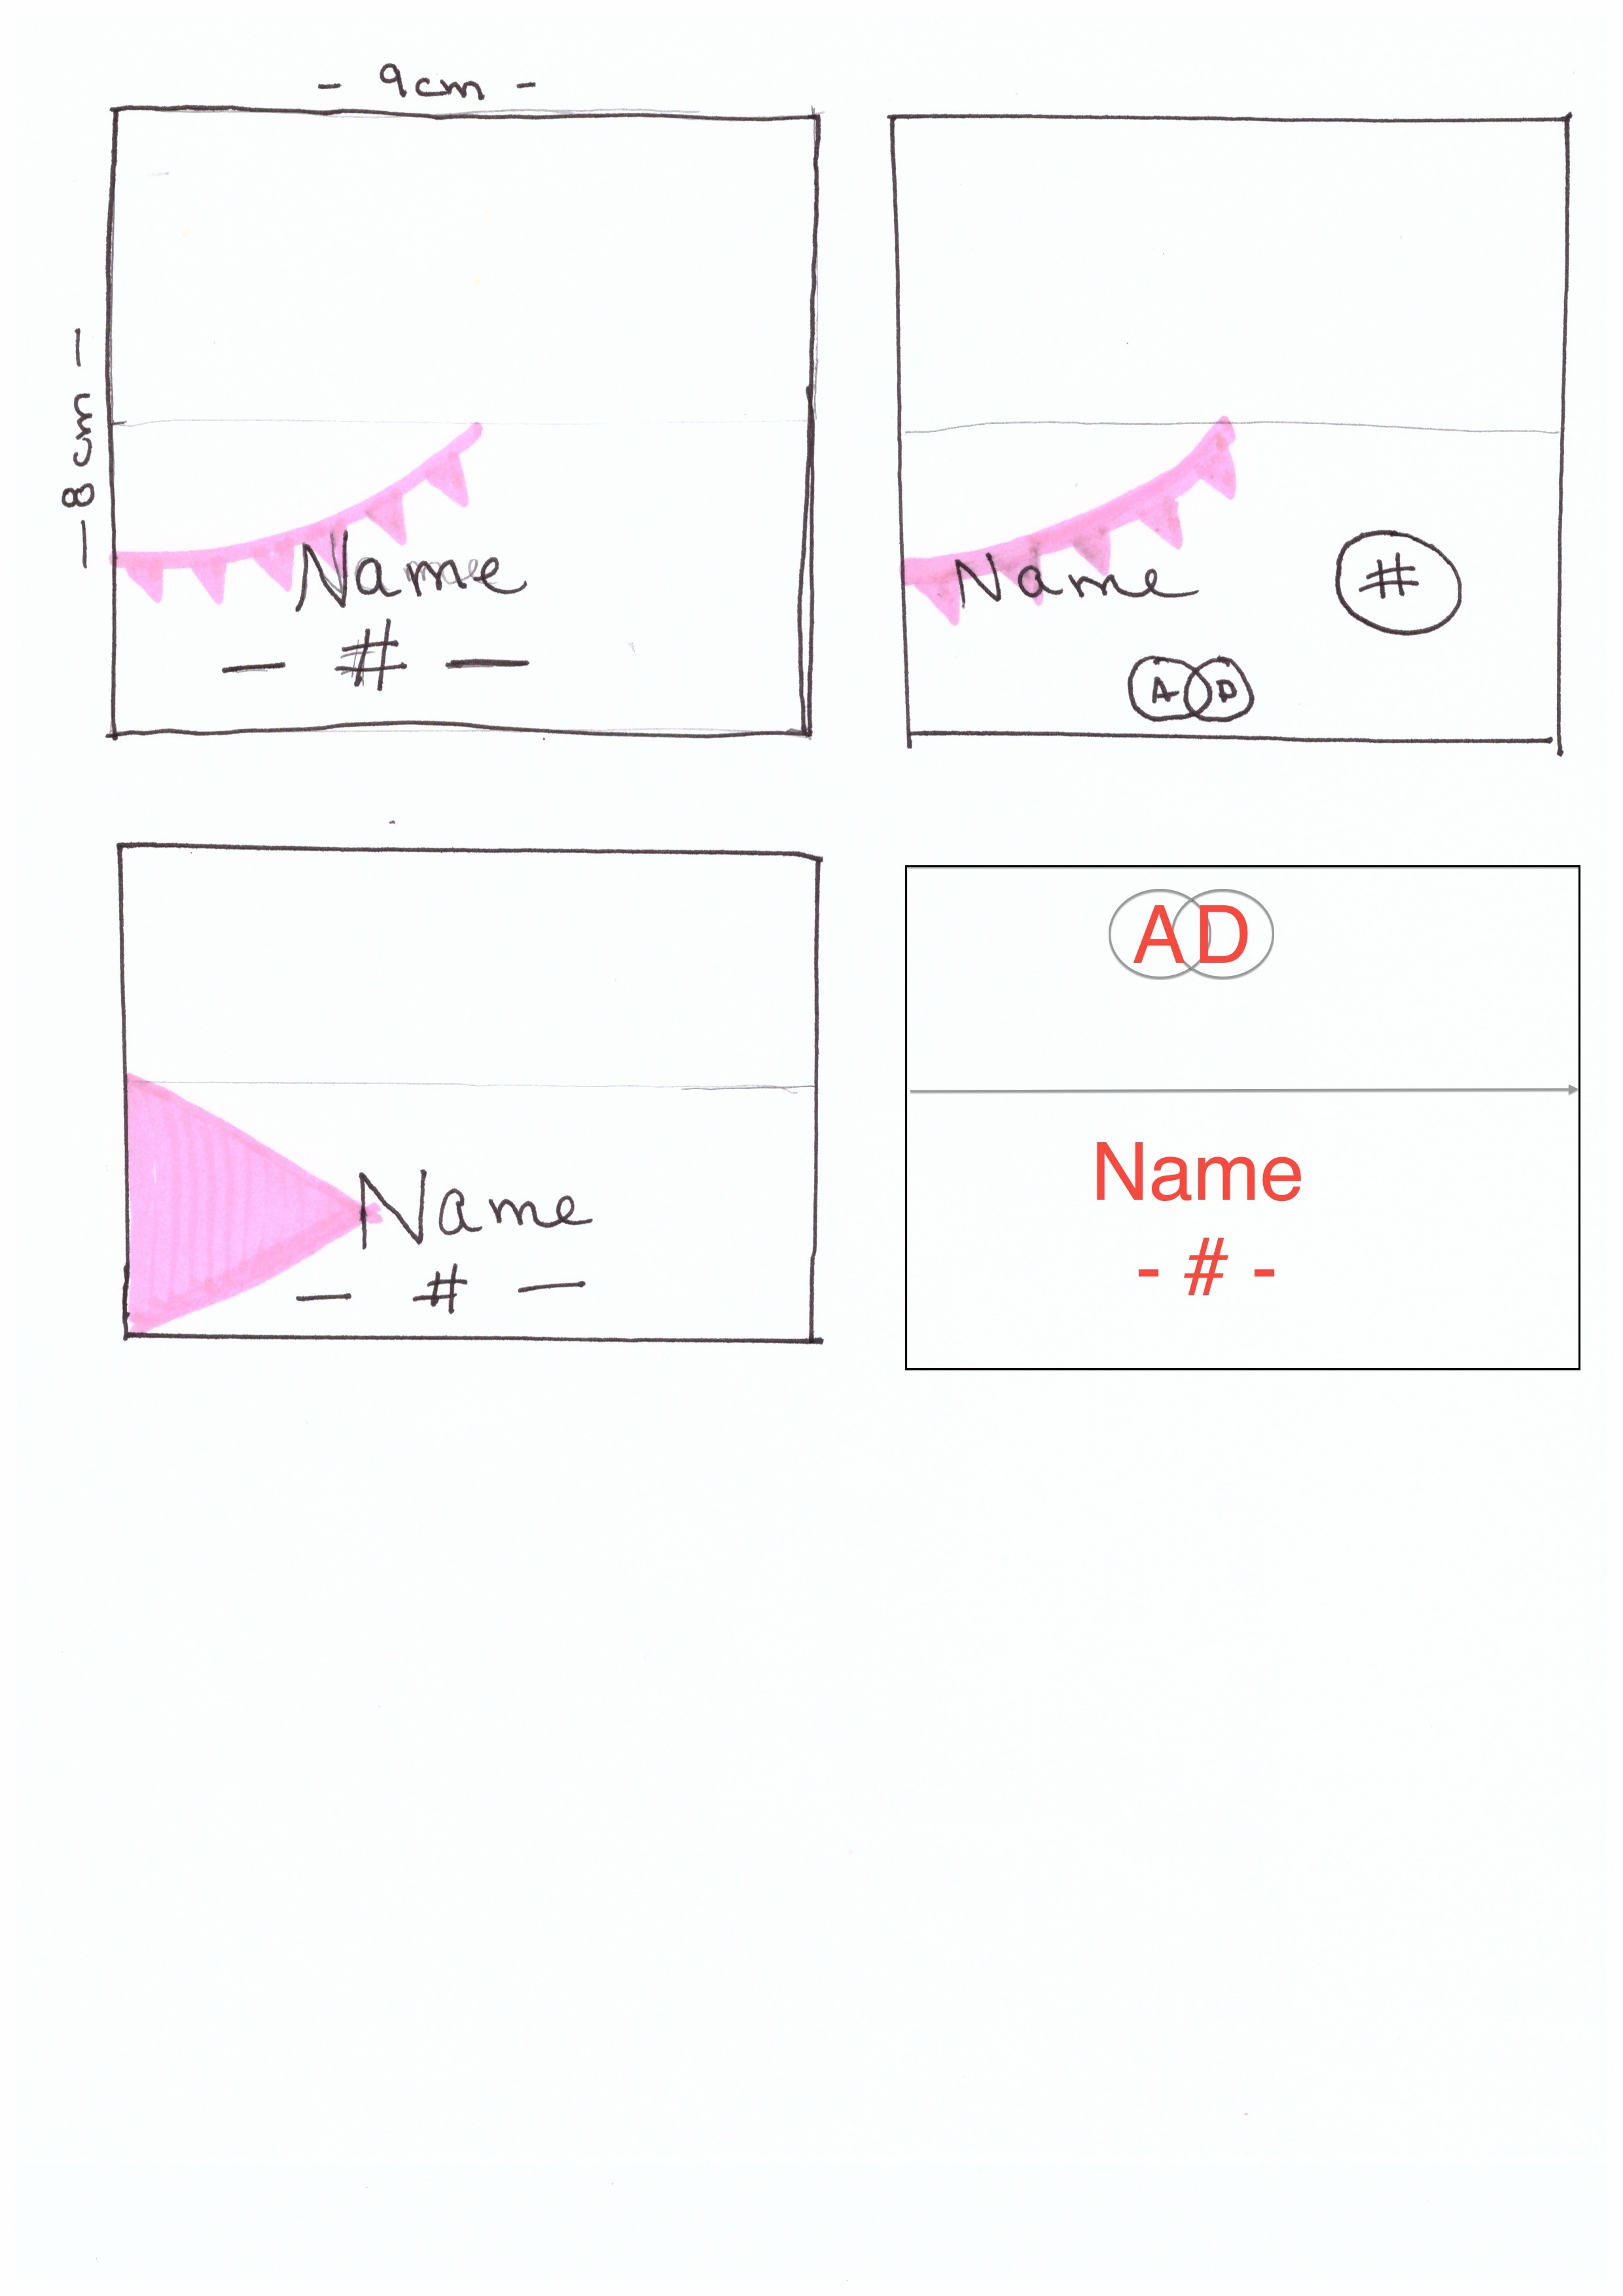 - 9cm -
- 8cm -
Name
- # -
Name
#
A D
Name
- # -
A D
Name
- # -